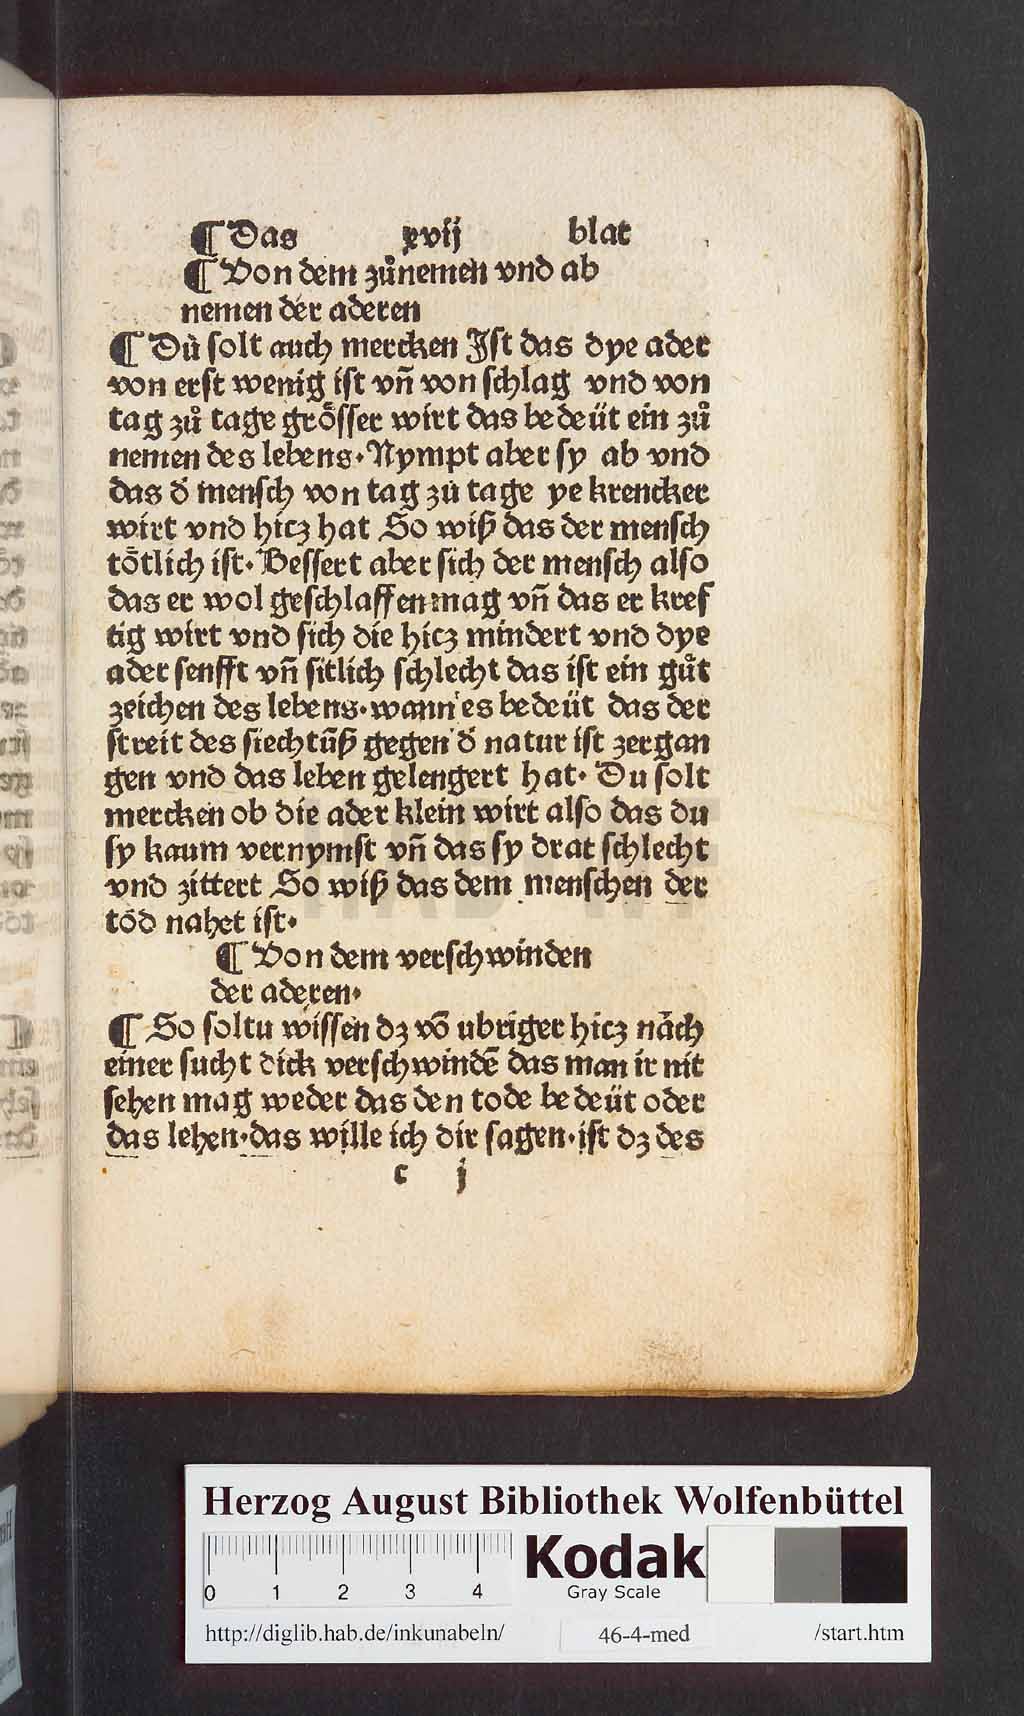 ¶ Das xvij blat
¶ Von dem zůnemen vnd ab
nemen der aderen
¶ Du solt auch mercken Ist das dye ader
von erst wenig ist vn̄ von schlag vnd von
tag zů tage groͤsser wirt das bedeüt ein zů
nemen des lebens·Nympt aber sy ab vnd
das d̄ mensch von tag zů tage ye krencker
wirt vnd hicz hat So wiß das der mensch
toͤtlich ist·Bessert aber sich der mensch also
das er wol geschlaffen mag vn̄ das er kref
tig wirt vnd sich die hicz mindert vnd dye
ader senfft vn̄ sitlich schlecht das ist ein gůt
zeichen des lebens·wann es bedeüt das der
streit des siechtūß gegen d̄ natur ist zergan
gen vnd das leben gelengert hat· Du solt
mercken ob die ader klein wirt also das du
sy kaum vernymst vn̄ das sy drat schlecht
vnd zittert So wiß das dem menschen der
tod nahet ist·
¶ Von dem verschwinden
der aderen·
¶ So soltu wissen dz vō ubriger hicz nach
einer sucht dick verschwindē das man ir nit
sehen mag weder das den tode bedeüt oder
das lehen·das wille ich dir sagen·ist dz des
c j
Herzog August Bibliothek Wolfenbüttel
0 1 2 3 4
Kodak
Gray Scale
http://diglib.hab.de/inkunabeln/ 46-4-med /start.htm